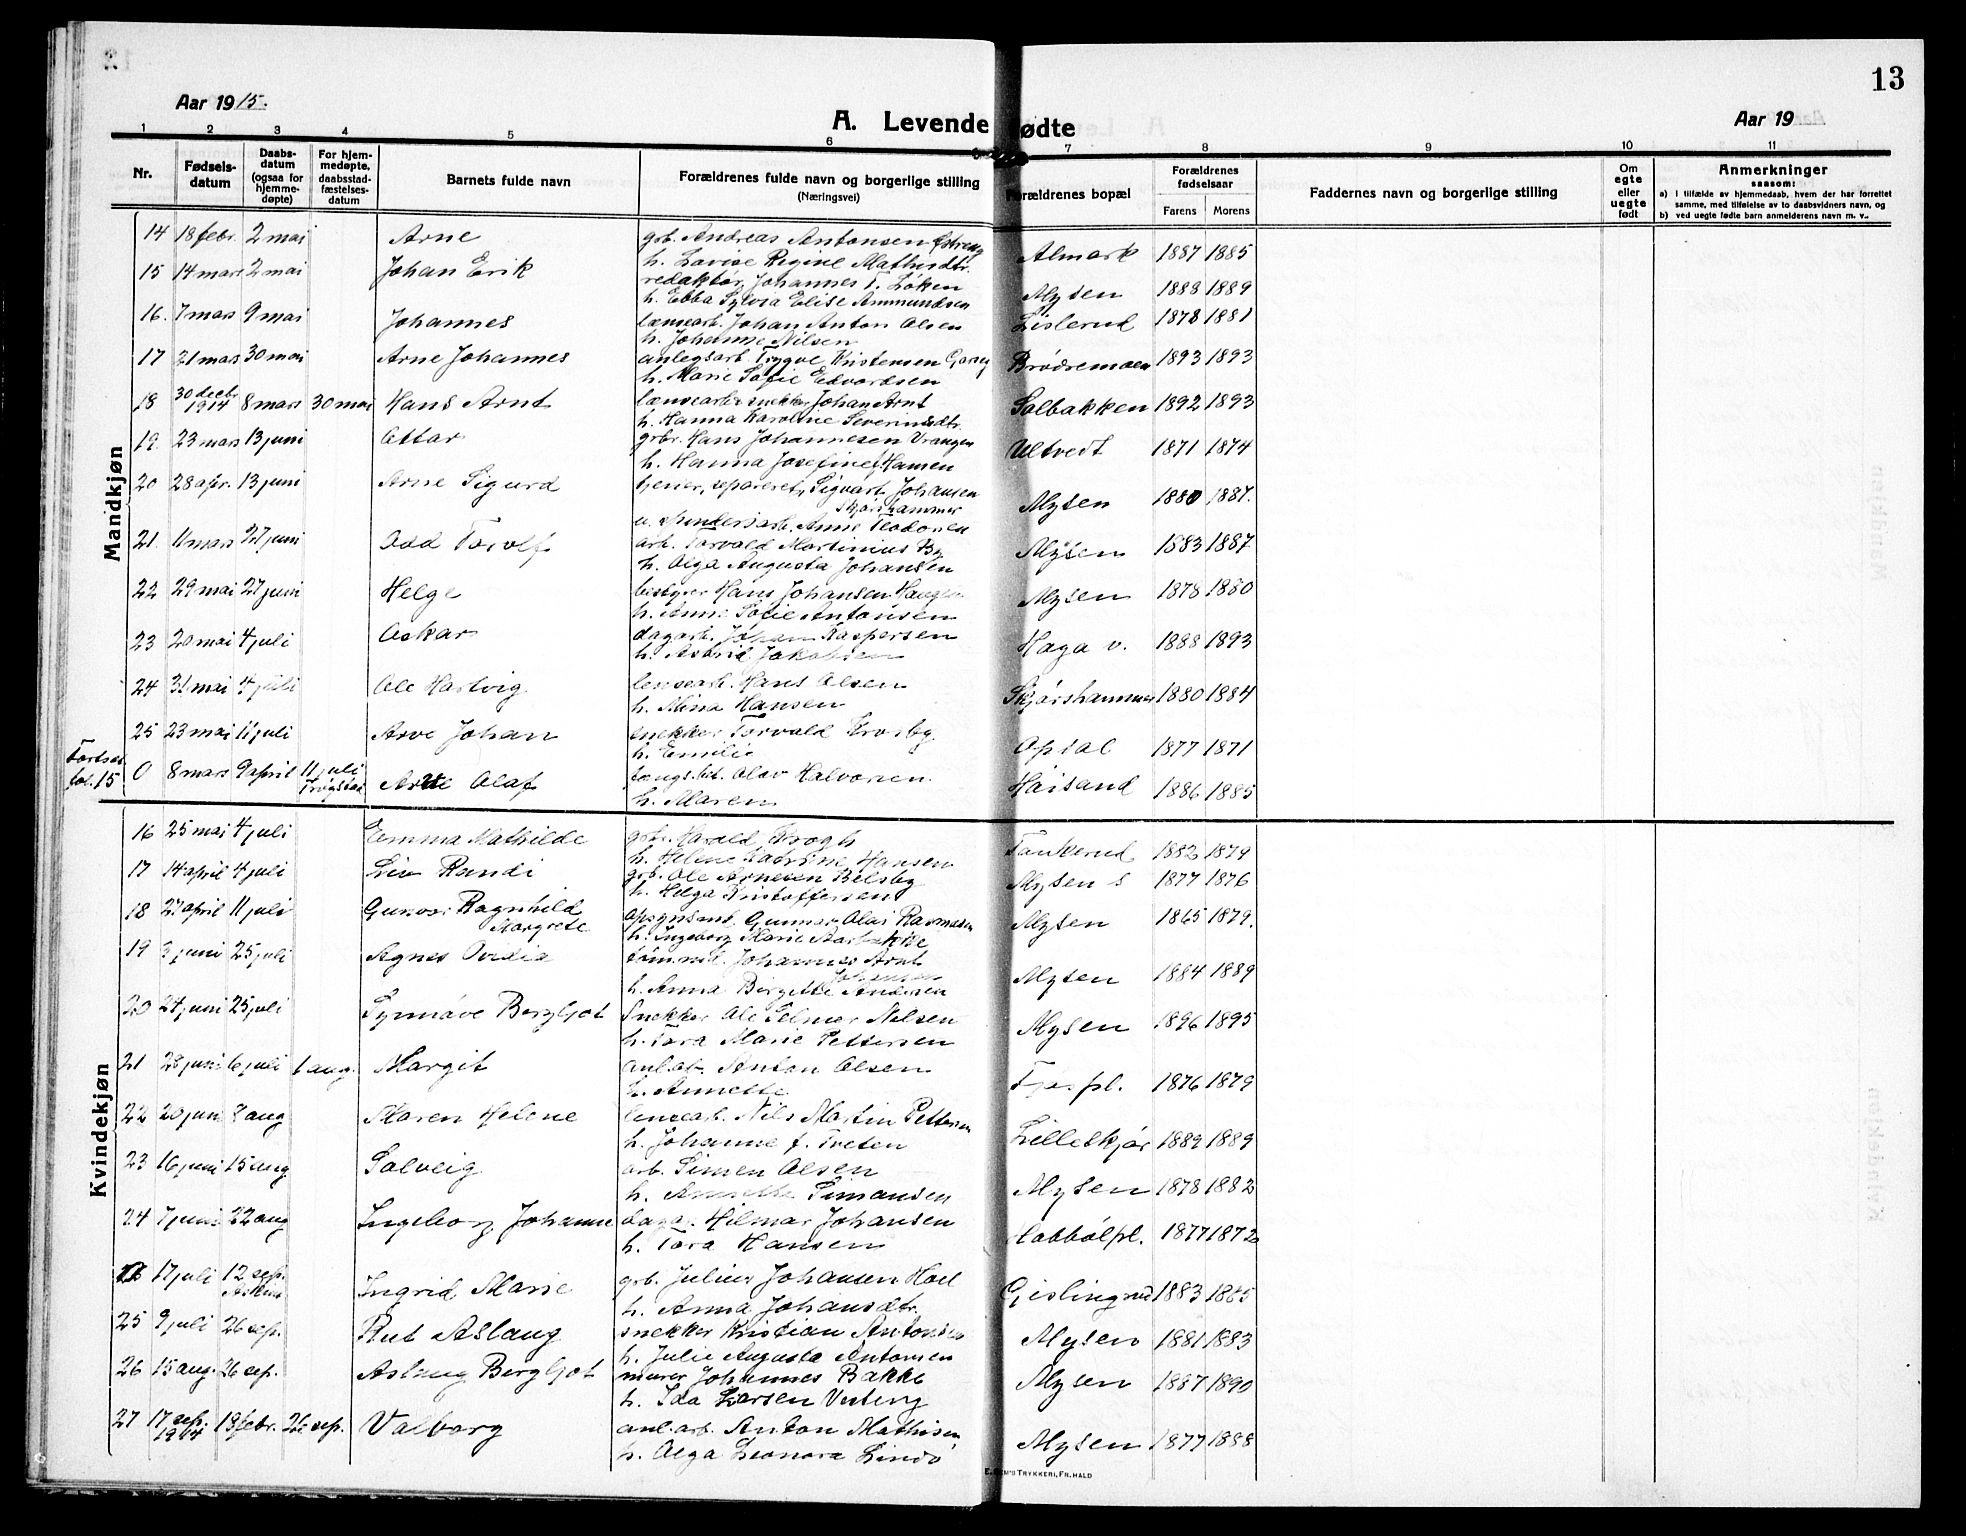 13
Aar 1915.
A. Levende fødte
Aar 19
1 2 3 4 5 6 7 8 9 10 11
Nr.
Fødselsdatum
Daabsdatum (ogsaa for hjemmedøpte)
For hjemmedøpte, daabsstadfæstelsesdatum
Barnets fulde navn
Forældrenes fulde navn og borgerlige stilling (Næringsvei)
Forældrenes bopæl
Forældrenes fødselsaar
Farens Morens
Faddernes navn og borgerlige stilling
Om egte eller uegte født
Anmerkninger
saasom:
a) I tilfælde av hjemmedaab, hvem der har forrettet samme, med tilføielse av to daabsvidners navn, og
b) ved uegte fødte barn anmelderens navn m. v..
Mandkjøn
14 18 febr. 2 mai Arne grb. Andreas Antonsen Østreng Almark 1887 1885
h. Lovise Regine Mathisdtr.
15 14 mars 2 mai Johan Erik redaktør Johannes T. Løken Mysen 1888 1889
h. Ebba Sylvia Elise Ammundsen
16. 7 mars 9 mai Johannes lænsearb. Johan Anton Olsen Lislerud 1878 1881
h. Johanne Nilsen
17 21 mars 30 mai Arne Johannes anlegsarb. Trygve Kristensen Brødremoen 1893 1893
h. Marie Sofie Edvardsen
18 30 decbr. 1914 8 mars 30 mai Hans Arnt snekker Johan Arnt Solbakken 1892 1893
h. Hanna Karoline Severinsdtr.
19. 23 mars 13 juni Ottar grbr. Hans Johannesen Vrangen Ultvedt 1871 1874
h. Hanna Josefine Hansen
20 28 apr. 13 juni Arne Sigurd tjener, separeret, Sigvart Johansen Mysen 1880 1887.
Skjørshammer
u. Anne Teodorsen
21. 11 mars 27 juni Odd Torolf arb. Torvald Martinius By Mysen 1883 1887
h. Olga Augusta Johansen
22 29 mai 27 juni Helge bestyrer Hans Johansen Haugen Mysen 1878 1880
h. Anne Sofie Antonsen
23 20 mai 4 juli Oskar dagarb. Johan Kaspersen Haga v. 1888 1893
h. Astrid Jakobsen
24 31 mai 4 juli Ole Hartvig lensearb. Hans Olsen Skjørshammer 1880 1884
h. Mina Hansen
25 23 mai 11 juli Arve Johan snekker Torvald Krosby Opsal 1877 1871
h. Emilie
Fortsat fol. 15 0 8 mars 9 april 11 juli Trøgstad Arne Olaf Olav Halvorsen Haisand 1886 1885
h. Maren
Kvindekjøn
16 25 mai 4 juli Emma Mathilde grb. Harald Krogh Tankerud 1882 1879
h. Helene Katrine Hansen
17 14 april 4 juli Liv Randi grb. Ole Arnesen Belsby Mysen s 1877 1876
h. Helga Kristoffersen
18 27 april 11 juli Gunvor Ragnhild opsynsmd. Gunnar Olai Rasmussen Mysen 1865 1879.
Margrete h. Ingeborg Marie Aarbakke
19 3 juni 25 juli Agnes Ovidia tømmrmd. Johannes Arnt Mysen 1884 1889
Johansen
h. Anna Birgitte Andersen
20 24 juni 25 juli Synnøve Bergljot Snekker Ole Selmer Nilsen Mysen 1896 1895
h. Tora Marie Pettersen
21 28 juni 6 juli 1 aug. Margit anl.arb. Anton Olsen 1876 1879
h. Annette
22 20 juni 8 aug Maren Helene lensearb. Nils Martin Pettersen Lilleskjør 1889 1889
h. Johanne f. Tveten
23 16 juni 15 aug Solveig arb. Simen Olsen Mysen 1878 1882
h. Annette Simansen
24 7 juni 22 aug Ingeborg Johanne Hilmar Johansen Hobbølpl. 1877 1872
h. Tora Hansen
17 juli 12 sep. Askim Ingrid Marie grb. Julius Johansen Hoel Gislingrud 1883 1885
h. Anna Johansdtr.
25 9 juli 26 sep. Rut Aslaug snekker Kristian Antonsen Mysen 1881 1883
h. Julie Augusta Antonsen
26 15 aug. 26 sep. Aslaug Bergljot murer Johannes Bakke Mysen 1887 1890
h. Ida Larsen Vesteng
27 17 sep. 1914 18 febr. 26 sep. Valborg anl.arb. Anton Mathisen Mysen 1877 1888
h. Olga Leonora Lindø
E. SEM'S TRYKKERI, FR.HALD